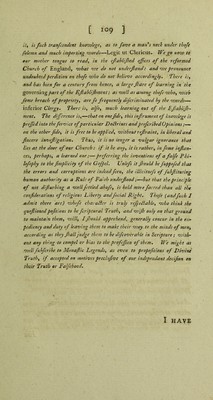 [ 109 ]
it, is such transcendent knowlege, as to save a man's neck under those
solemn and much importing words—Legit ut Clericus. We go now to
our mother tongue to read, in the established offices of the reformed
Church of England, what we do not understand: and we pronounce
undoubted perdition to those who do not believe accordingly. There is,
and has been for a century from hence, a large share of learning in the
governing part of the Establishment; as well as among those who, with
some breach of propriety, are so frequently discriminated by the words—
inferior Clergy. There is, also, much learning out of the Establish-
ment. The difference is,—that on one side, this instrument of knowlege is
pressed into the service of particular Doctrines and prescribed Opinions;—
on the other side, it is free to be applied, without restraint, in liberal and
sincere investigation. Thus, it is no longer a vulgar ignorance that
lies at the door of our Church: if it be any, it is rather, in some instan-
ces, perhaps, a learned one:—preferring the inventions of a false Phi-
losophy to the simplicity of the Gospel. Unless it should be supposed that
the errors and corruptions are indeed seen, the illicitness of substituting
human authority as a Rule of Faith understood;—but that the principle
of not disturbing a well-settled abuse, is held more sacred than all the
considerations of religious Liberty and social Right. Those (and such I
admit there are) whose character is truly respectable, who think the
questioned positions to be scriptural Truth, and wish only on that ground
to maintain them, will, I should apprehend, generally concur in the ex-
pediency and duty of leaving them to make their way to the minds of men,
according as they shall judge them to be discoverable in Scripture; with-
out any thing to compel or bias to the profession of them. We might as
well subscribe to Monastic Legends, as even to propositions of Divine
Truth, if accepted on motives preclusive of our independent decision on
their Truth or Falsehood.
I HAVE